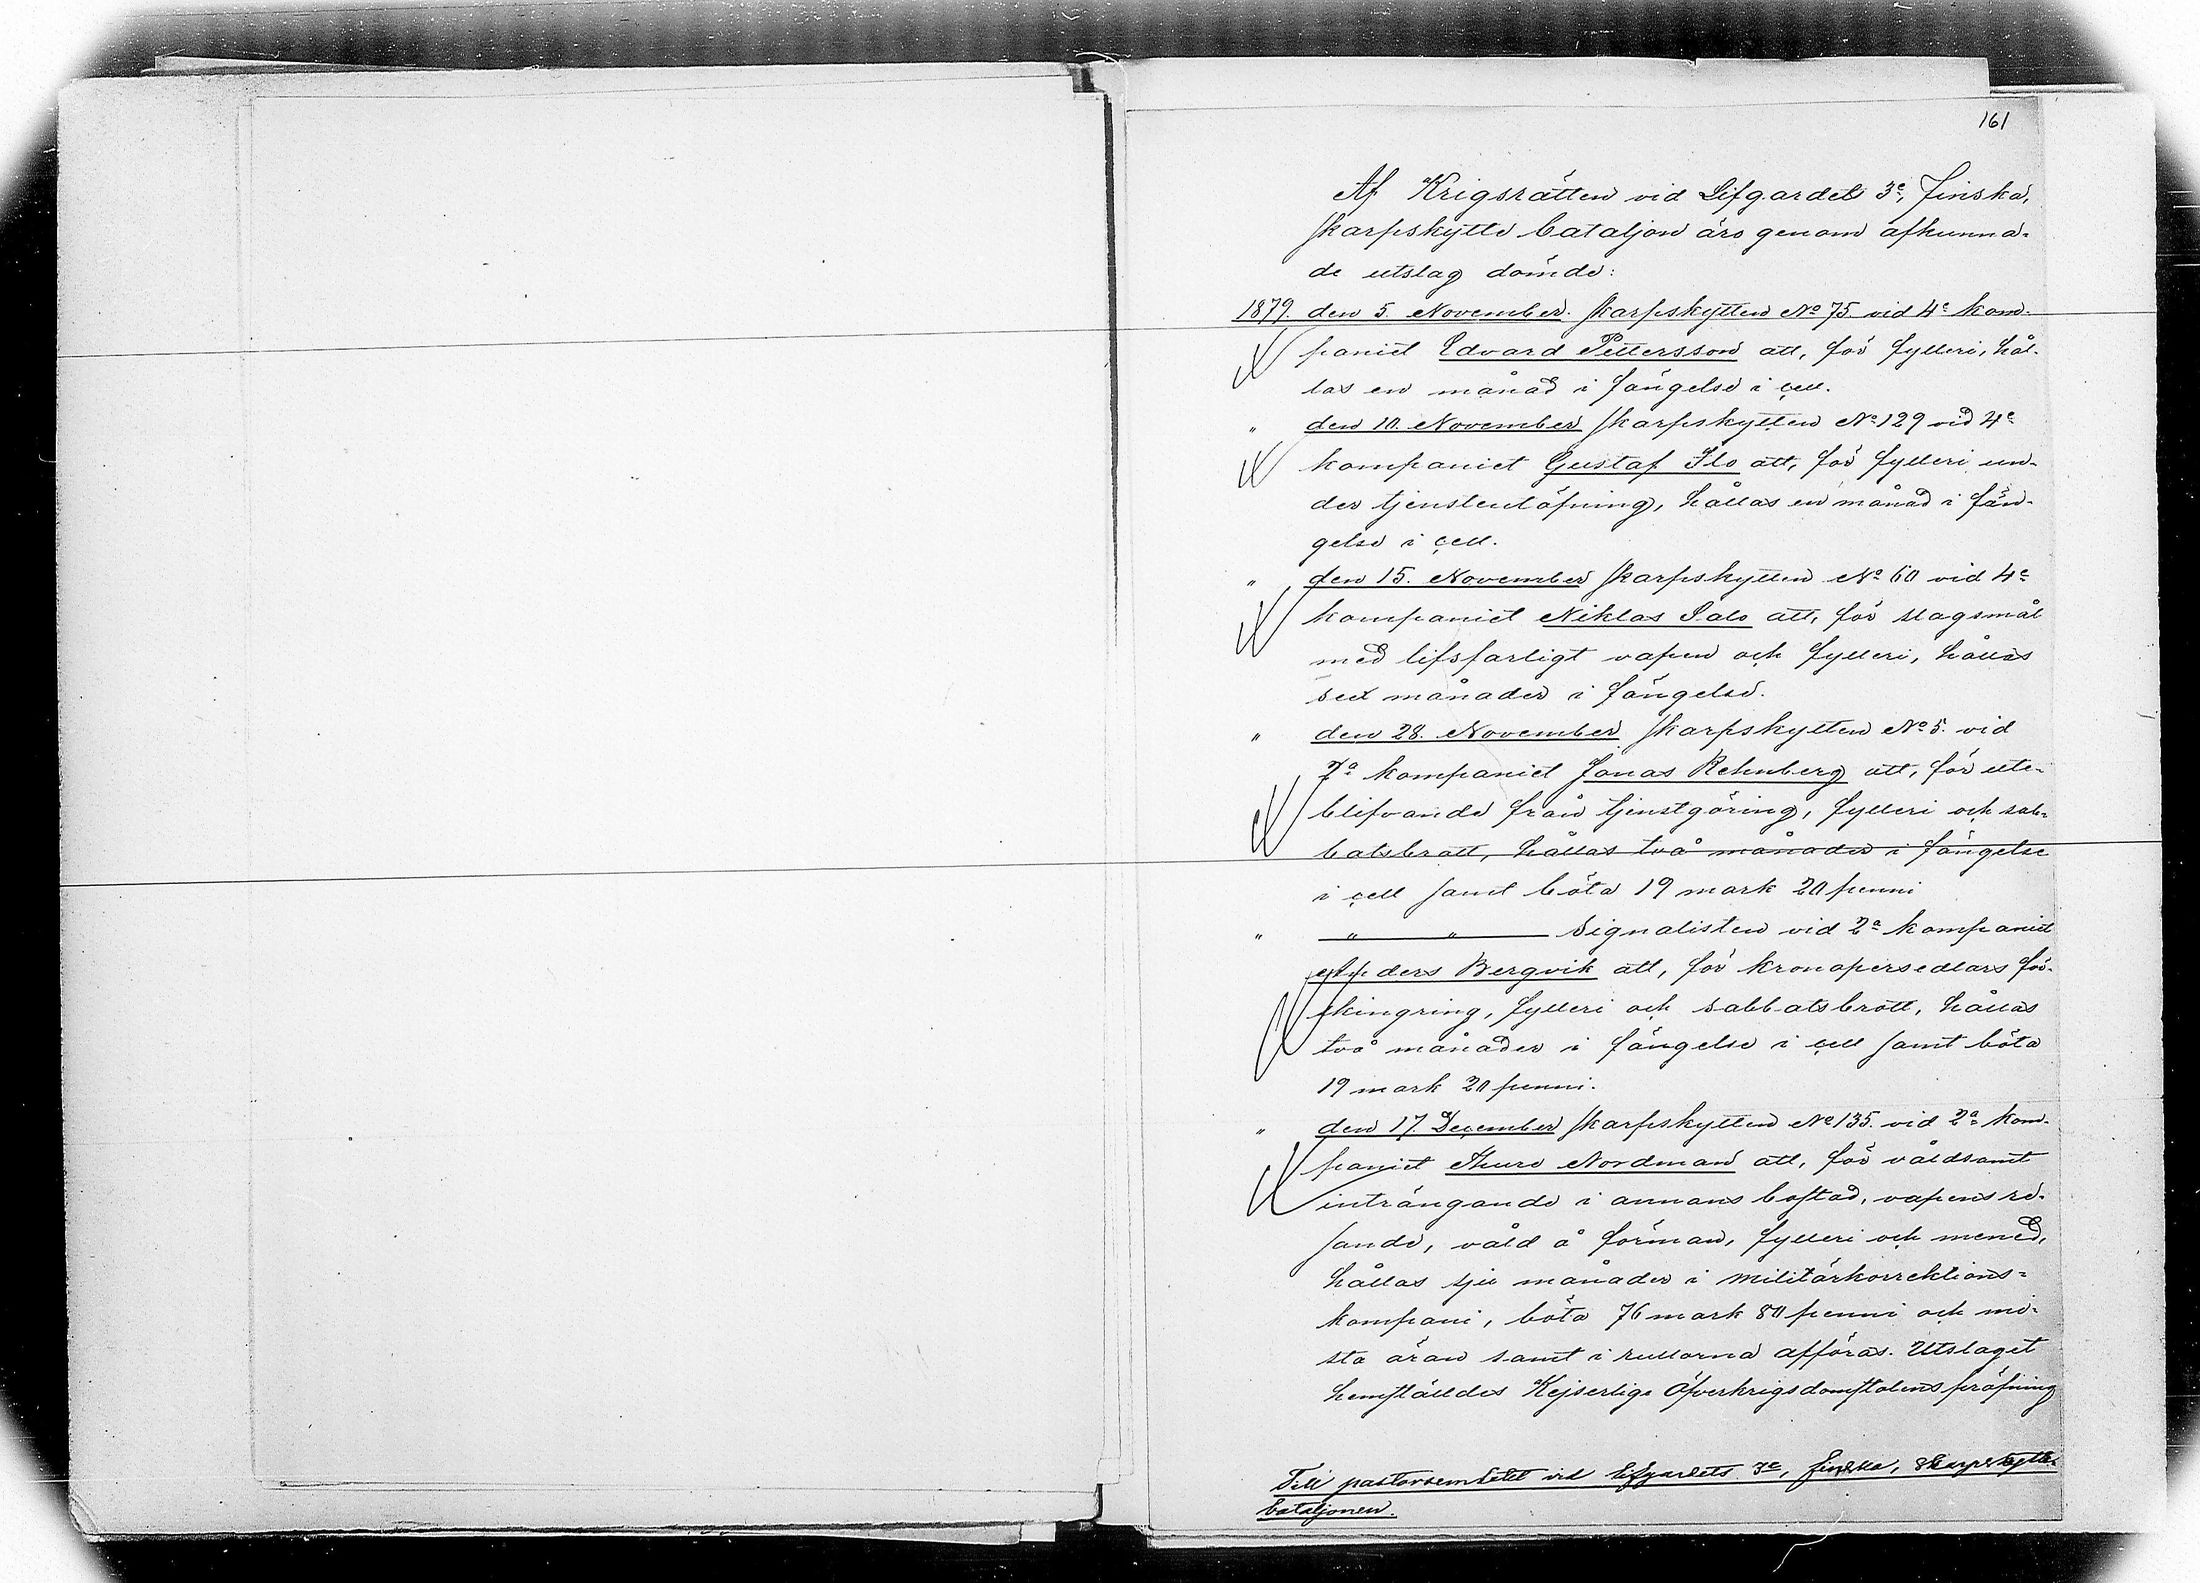 161
Af Krigsrätten vid Lifgardets 3e, Finska,
skarpskytte bataljon äro genom afkunna-
de utslag dömde:
1879. den 5. November. skarpskytten No 75 vid 4e kom-
paniet Edvard Pettersson att, för fylleri, hål-
las en månad i fängelse i cell.
" den 10. November skarpskytten No 129 vid 4e
kompaniet Gustaf Ilo att, för fylleri un-
der tjensteutöfning, hållas en månad i fän-
gelse i cell.
" den 15. November skarpskytten No 60 vid 4e
kompaniet Niklas Salo att, för slagsmål
med lifsfarligt vapen och fylleri, hållas
sex månader i fängelse.
" den 28. November skarpskytten No 5. vid
2a kompaniet Jonas Rehnberg att, för ute-
blifvande från tjenstgöring, fylleri och sab-
batsbrott, hållas två månader i fängelse
i cell samt böta 19 mark 20 penni
" " " Signalisten vid 2a kompaniet
Anders Bergvik att, för kronopersedlars för-
skingring, fylleri och sabbatsbrott, hållas
två månader i fängelse i cell samt böta
19 mark 20 penni.
" den 17. December skarpskytten No 135. vid 2a kom-
paniet Thure Nordman att, för våldsamt
inträngande i annans bostad, vapens re-
sande, våld å förman, fylleri och mened,
hållas sju månader i militärkorrektions-
kompani, böta 76 mark 80 penni och mi-
sta äran samt i rullorna afföras. Utslaget
hemställdes Kejserliga Öfverkrigsdomstolens pröfning
Till pastorsembetet vid Lifgardets 3e, finska, skarpskytte-
bataljonen.